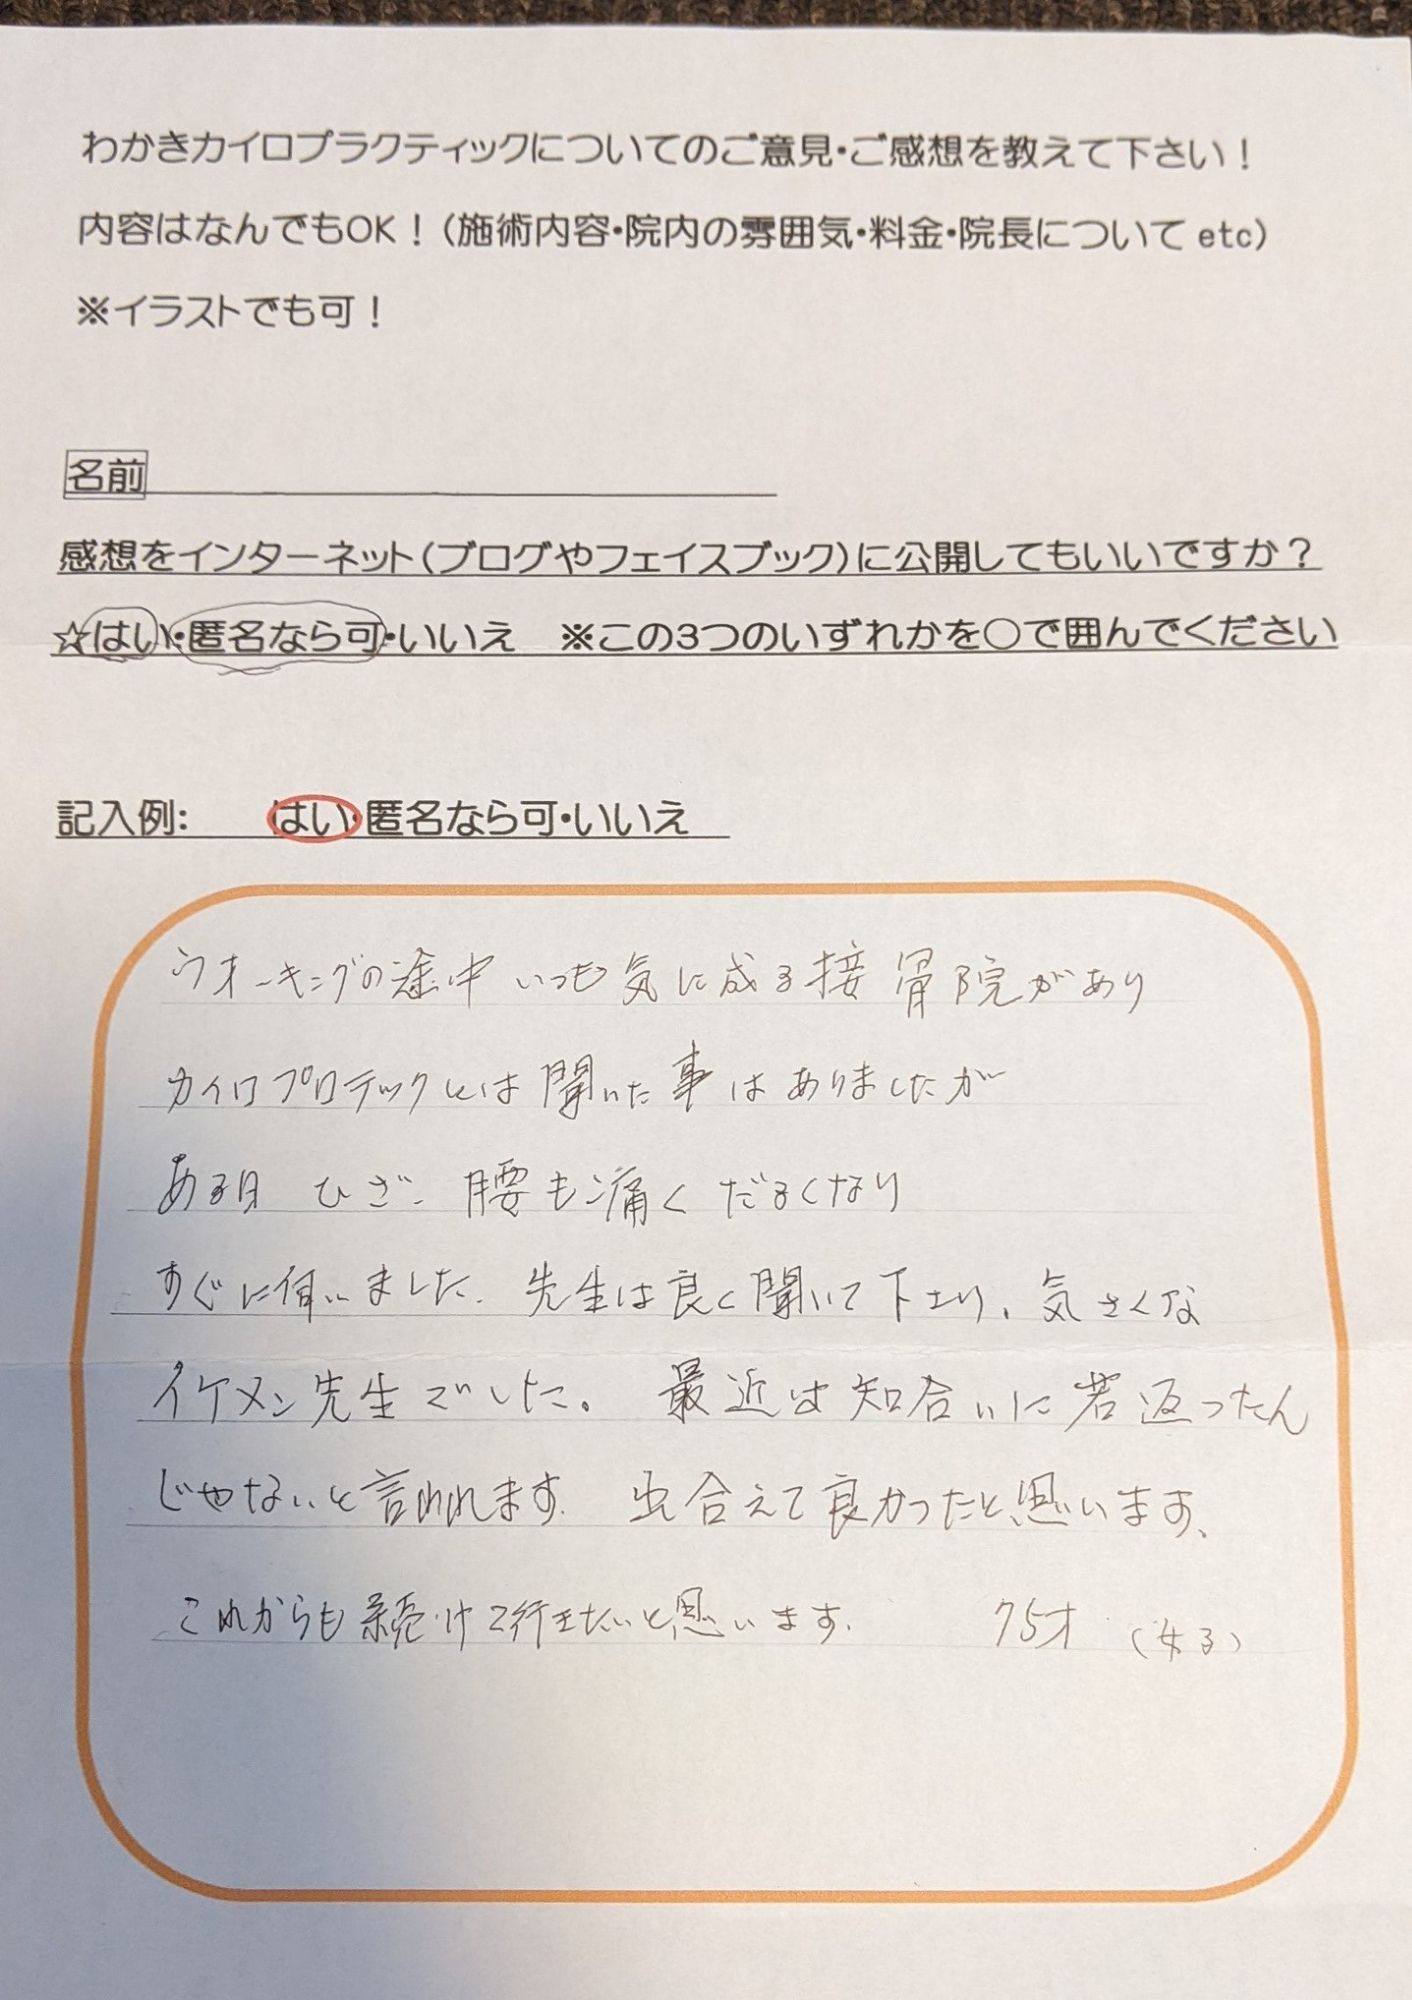 わかきカイロプラクティックについてのご意見・ご感想を教えて下さい！
内容はなんでもOK！（施術内容・院内の雰囲気・料金・院長について etc）
※イラストでも可！
名前
感想をインターネット（ブログやフェイスブック）に公開してもいいですか？
☆はい・匿名なら可・いいえ　※この3つのいずれかを〇で囲んでください
記入例：　はい・匿名なら可・いいえ
ウオーキングの途中 いつも気に成る接骨院があり
カイロプロテックとは聞いた事はありましたが
ある日 ひざ、腰も痛く だるくなり
すぐに伺いました。先生は良く聞いて下さり、気さくな
イケメン先生でした。最近は知合いに若返ったん
じゃないと言われます。出合えて良かったと思います、
これからも続けて行きたいと思います。 75才 （女子）